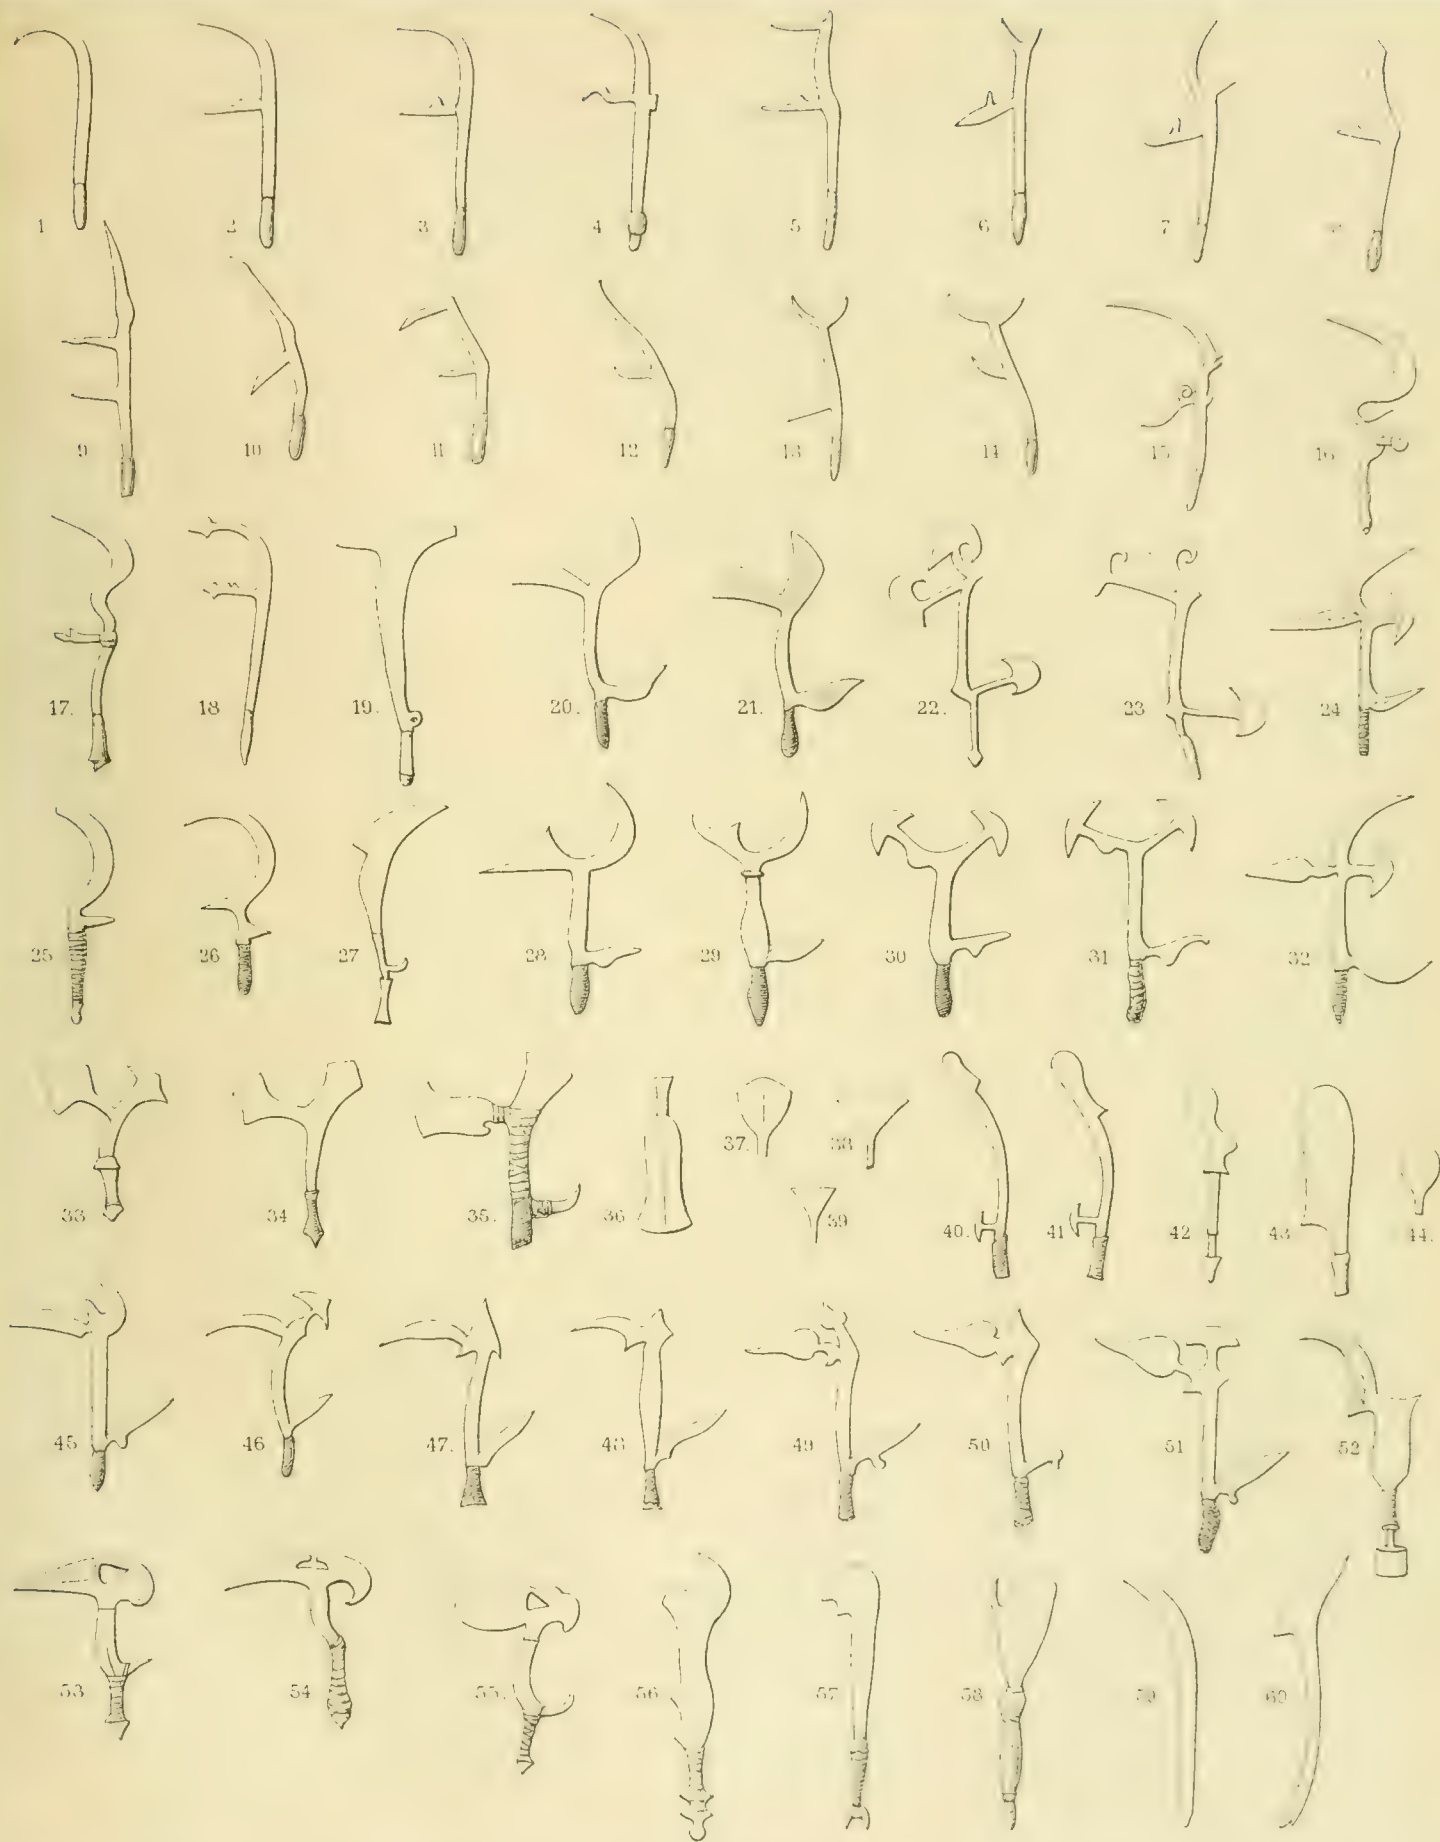 1 2 3 4 5 6 7 8
9 10 11 12 13 14 15 16
17. 18 19. 20. 21. 22. 23 24
25 26 27 28 29 30 31 32
33 34 35. 36 37. 38 39 40. 41 42 43 44.
45 46 47. 48 49 50 51 52
53 54 55. 56 57 58 59 60